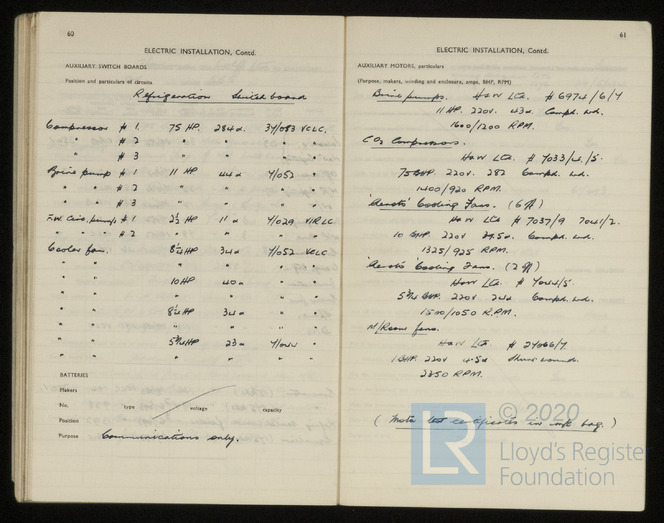 60
ELECTRIC INSTALLATION, Contd.
AUXILIARY SWITCH BOARDS
Position and particulars of circuits
Refrigeration Switchboard
Compressor # 1. 75 HP. 284a. 37/083 VCLC.
" # 2 " " " "
" # 3 " " " "
Brine pump # 1 11 HP 44a 7/052 "
" " # 2 " " " "
" " # 3 " " " "
F.W. Circ. pump # 1 2½ HP 11a 7/029 VIRLC.
" " " # 2 " " " "
Cooler fan. 8¼ HP 34a 7/052 VCLC
" " " " " "
" " 10 HP 40a " "
" " " " " "
" " 8¼ HP 34a " "
" " " " " "
" " 5¾ HP 23a 7/044 "
" " " " " "
BATTERIES
Makers
No. type voltage capacity
Position
Purpose Communications only.
61
ELECTRIC INSTALLATION, Contd.
AUXILIARY MOTORS, particulars
(Purpose, makers, winding and enclosure, amps, BHP, RPM)
Brine pumps. H&W Ltd. # 6974/6/7
11 HP. 220v. 43a. Comph. wd.
1600/1200 RPM.
CO2 Compressors.
H&W Ltd. # 7033/4/5.
75 BHP. 220v. 282 Comph. wd.
1400/920 RPM.
Cooling Fans. (6 off)
H&W Ltd # 7037/9 7041/2.
10 BHP. 220v Comph. wd.
1325/925 RPM.
Cooling Fans. (2 off)
H&W Ltd. # 7044/5.
5¾ BHP. 220v 24a Comph. wd.
1500/1050 R.P.M.
M/Room fans.
H&W Ltd # 27066/7.
1 BHP. 220v 4.5a Shunt wound.
RPM.
( Motor test certificates in bag. )
© 2020
LR
Lloyd's Register
Foundation